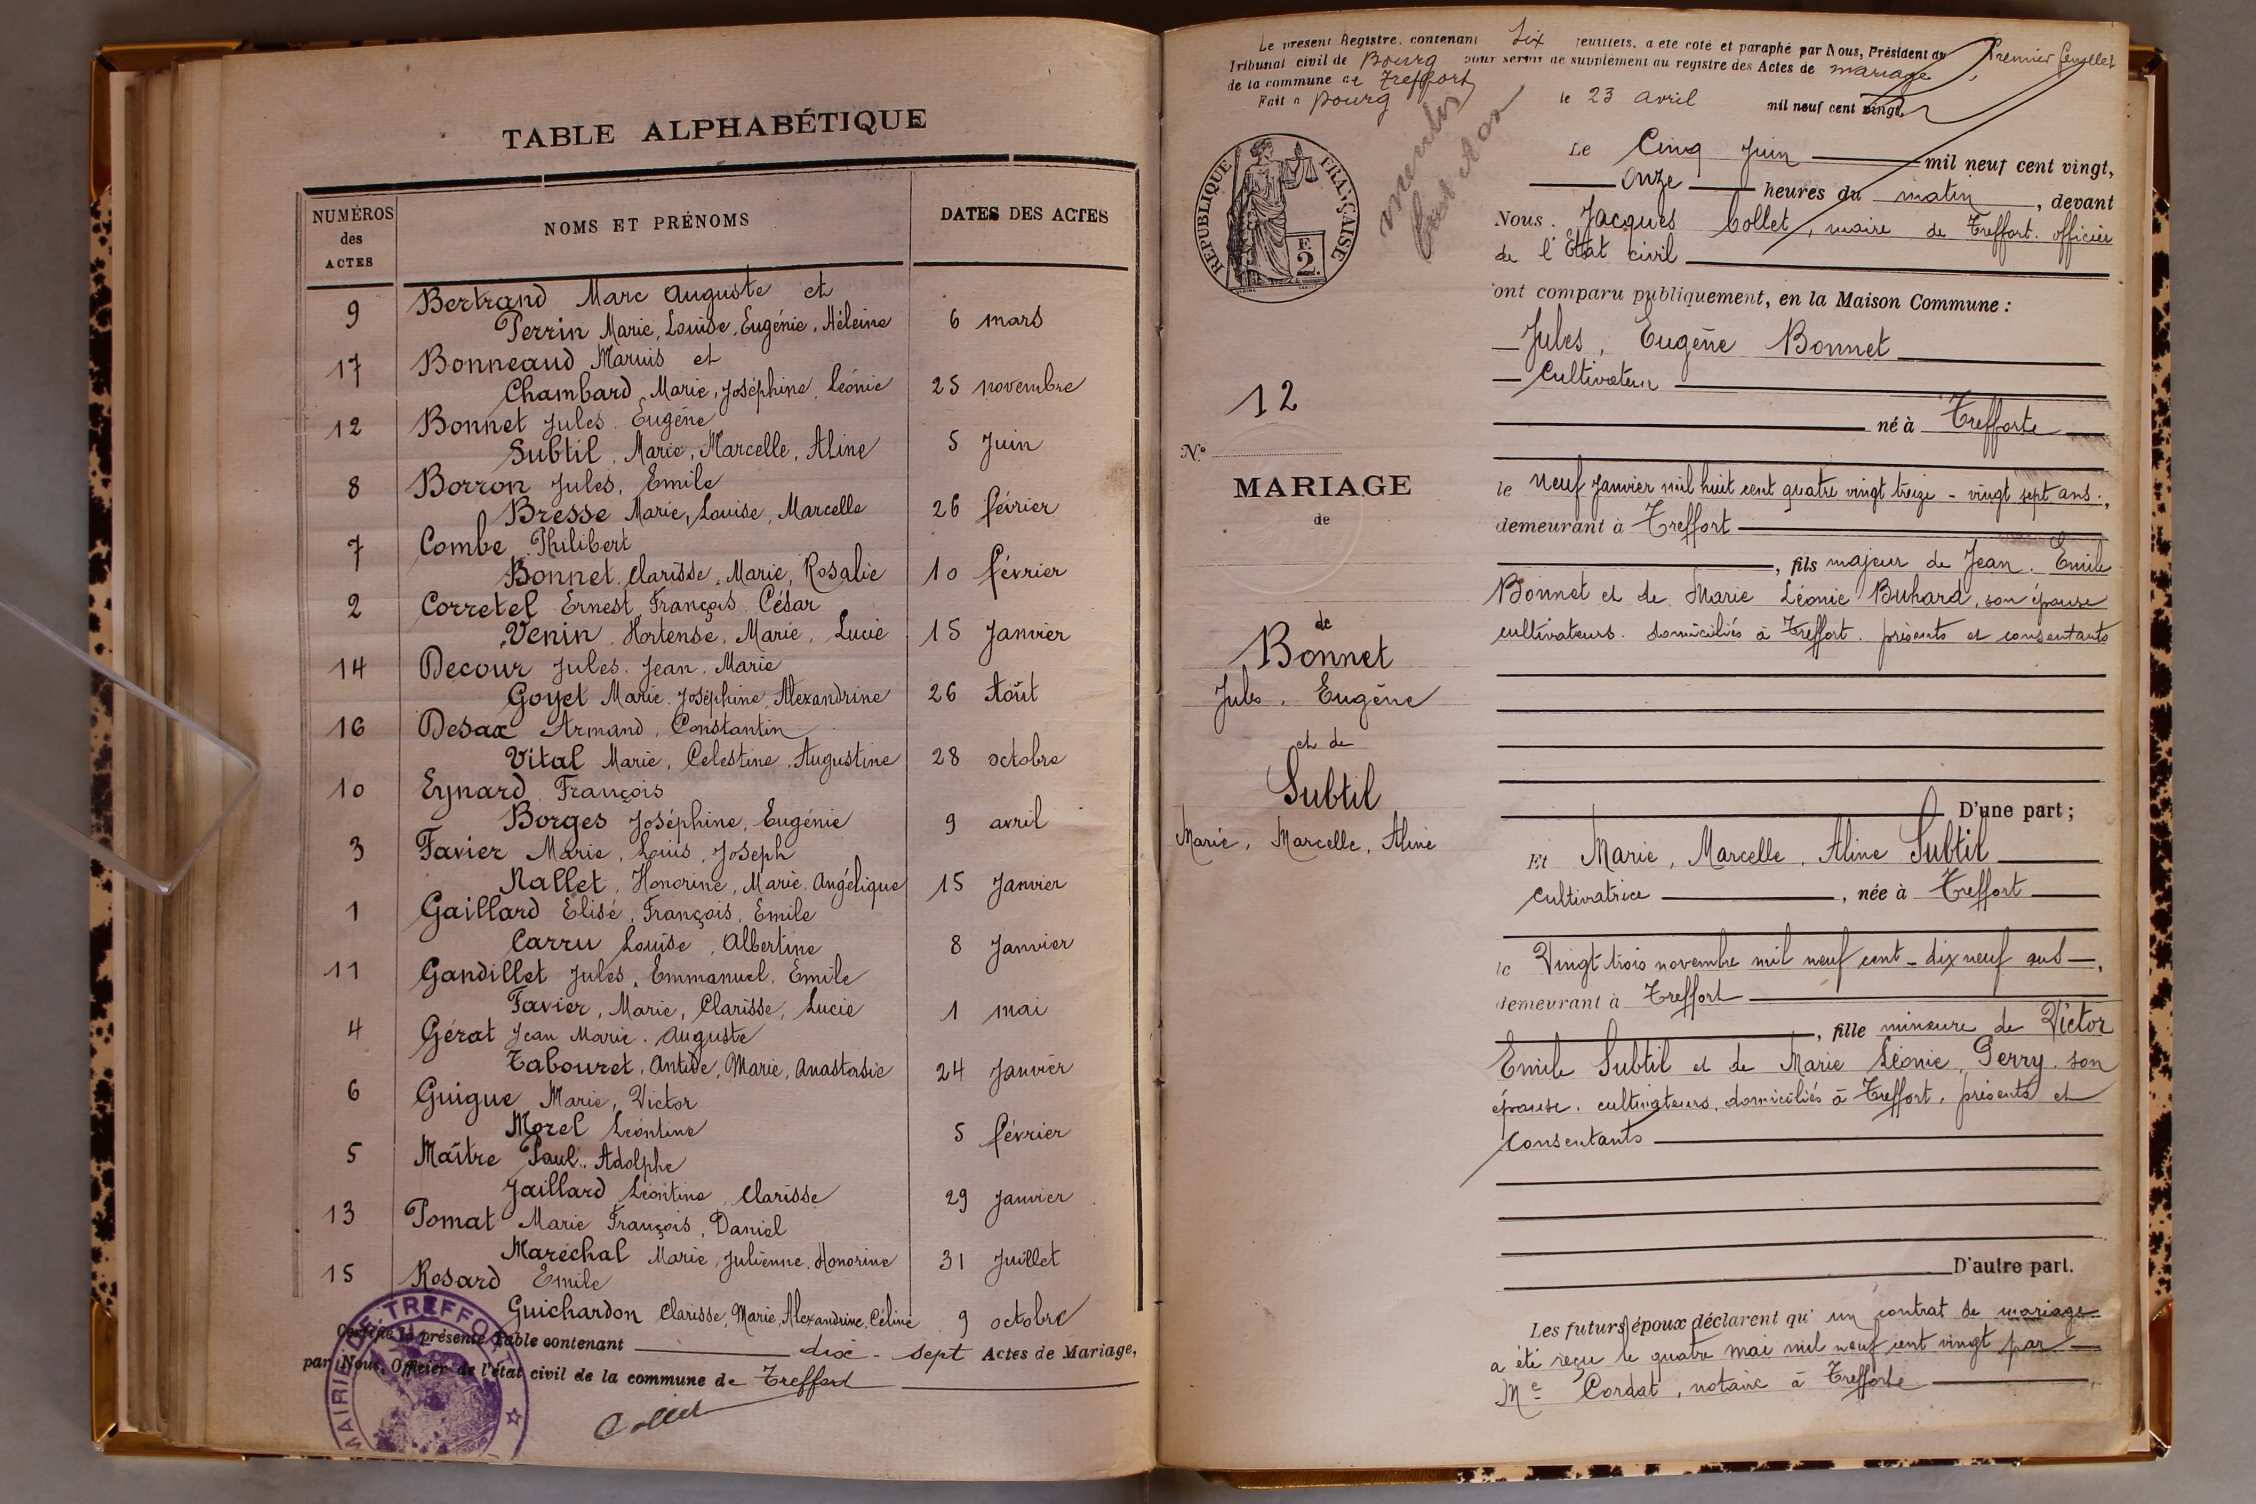 TABLE ALPHABÉTIQUE
NUMÉROS des ACTES
NOMS ET PRÉNOMS
DATES DES ACTES
9 Bertrand Marc Auguste et
Perrin Marie, Louise, Eugénie, Héleine 6 mars
17 Bonneaud Maruis et
Chambard Marie, Joséphine, Léonie 25 novembre
12 Bonnet Jules Eugène
Subtil, Marie, Marcelle, Aline 5 Juin
8 Borron Jules, Emile
Bresse Marie, Louise, Marcelle 26 février
7 Combe Philibert
Bonnet Clarisse, Marie, Rosalie 10 février
2 Corretel Ernest, François, César
Venin Hortense, Marie, Lucie 15 Janvier
14 Decour Jules, Jean, Marie
Goyet Marie Joséphine, Alexandrine 26 Août
16 Desax Armand, Constantin
Vital Marie, Celestine, Augustine 28 octobre
10 Eynard François
Borges Joséphine, Eugénie 9 avril
3 Favier Marie, Louis, Joseph
Nallet, Honorine, Marie, Angélique 15 Janvier
1 Gaillard Elisé, François, Emile
Carru Louise, Albertine 8 Janvier
11 Gandillet Jules, Emmanuel, Emile
Favier, Marie, Clarisse, Lucie 1 mai
4 Gérat Jean Marie, Auguste
Tabouret, Antide, Marie, Anastasie 24 Janvier
6 Guigue Marie, Victor
Morel Léontine 5 février
5 Maître Paul, Adolphe
Jaillard Léontine, Clarisse 29 Janvier
13 Pomat Marie François, Daniel
Maréchal Marie, Julienne, Honorine 31 Juillet
15 Rosard Emile
Guichardon Clarisse, Marie, Alexandrine, Céline 9 octobre
Certifié la présente Table contenant dix-sept Actes de Mariage,
par Nous, Officier de l'état civil de la commune de Treffort
Collet
MAIRIE DE TREFFORT
Le présent Registre, contenant Six feuillets, a été coté et paraphé par Nous, Président du
Premier feuillet
Tribunal civil de Bourg pour servir de supplément au registre des Actes de mariage
de la commune de Treffort
Fait à Bourg le 23 avril mil neuf cent vingt
RÉPUBLIQUE FRANÇAISE
F.
2.
Le Cinq Juin mil neuf cent vingt,
onze heures du matin, devant
Nous Jacques Collet, maire de Treffort. officier
de l'Etat civil
ont comparu publiquement, en la Maison Commune :
Jules, Eugène Bonnet
Cultivateur
né à Trefforte
le neuf Janvier mil huit cent quatre vingt treize - vingt sept ans.,
demeurant à Treffort
, fils majeur de Jean. Emile
Bonnet et de Marie Léonie Buhard, son épouse
cultivateurs. domiciliés à Treffort. présents et consentants
D'une part ;
Et Marie, Marcelle, Aline Subtil
cultivatrice, née à Treffort
le Vingt trois novembre mil neuf cent - dix neuf ans,
demeurant à Treffort
, fille mineure de Victor
Emile Subtil et de Marie Léonie, Perry son
épouse. cultivateurs. domiciliés à Treffort, présents et
consentants
D'autre part.
Les futurs époux déclarent qu'un contrat de mariage
a été reçu le quatre mai mil neuf cent vingt par
Me Cordat, notaire à Trefforte
12
No
MARIAGE
de
de
Bonnet
Jules, Eugène
et de
Subtil
Marie, Marcelle, Aline